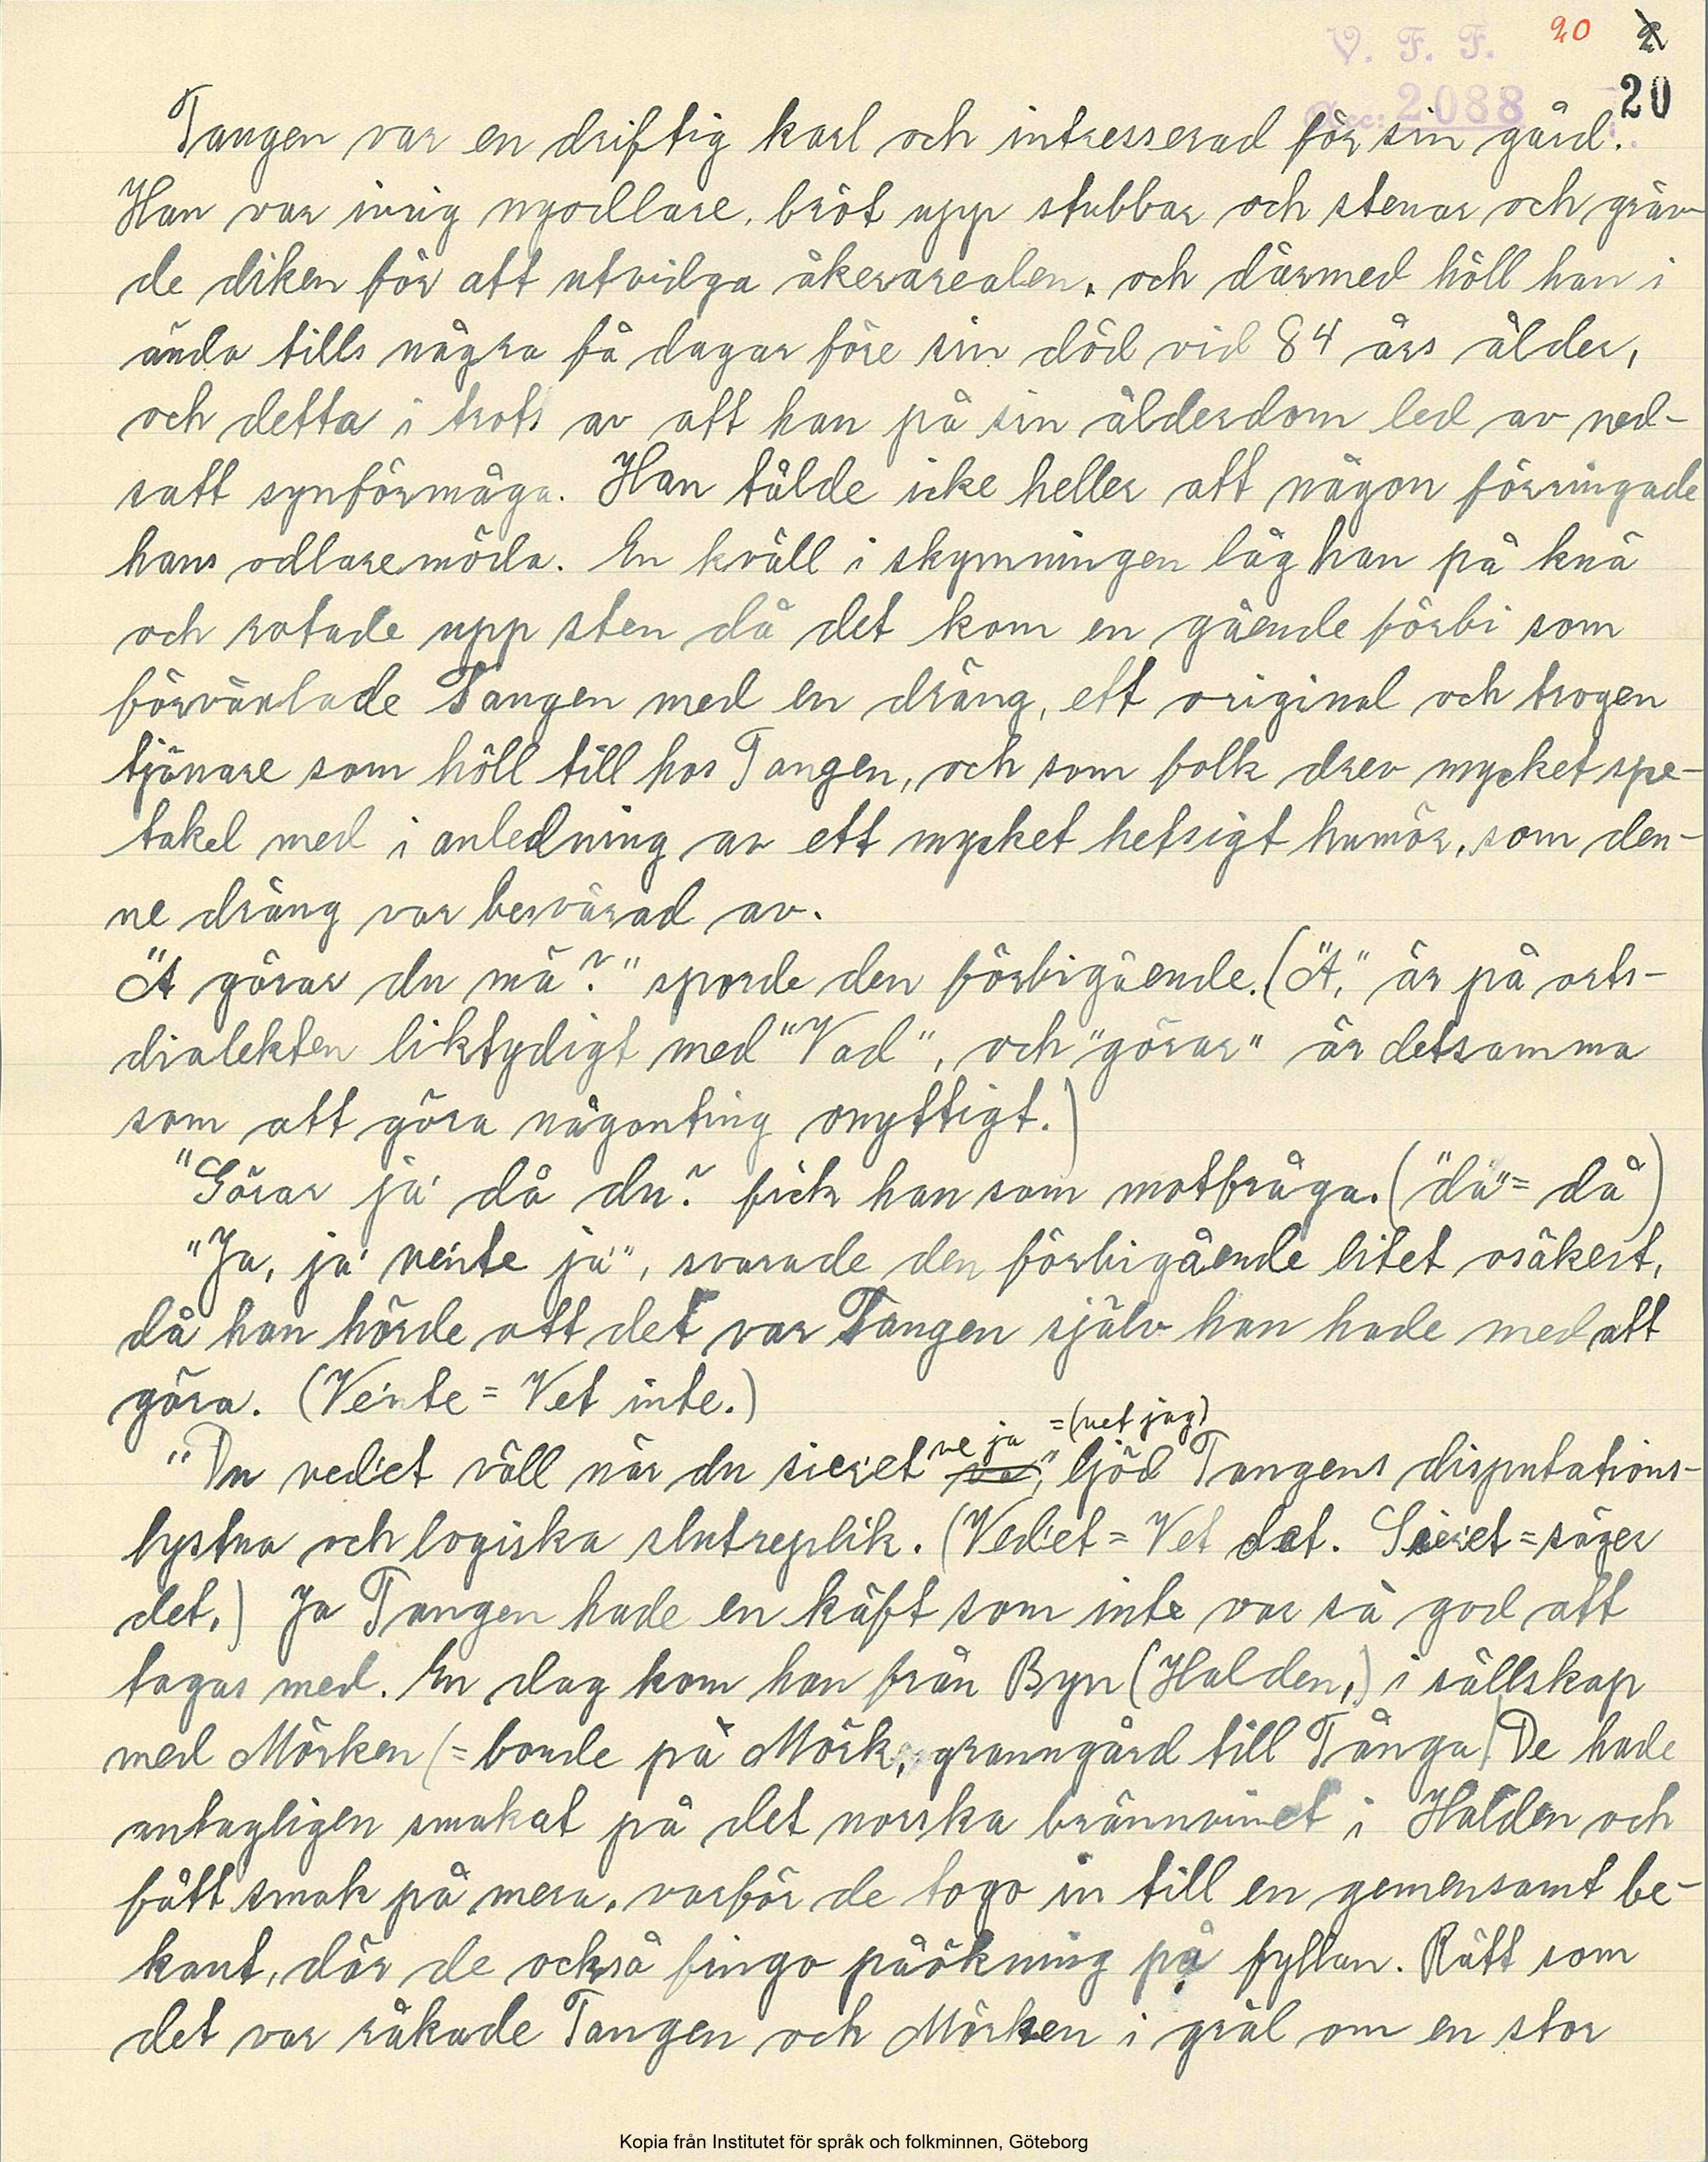 V. F. F. 20 2
Acc: 2088 20
Tangen var en driftig karl och intresserad för sin gård.
Han var ivrig nyodlare, bröt upp stubbar och stenar och gräv-
de diken för att utvidga åkerarealen, och därmed höll han i
ända tills några få dagar före sin död vid 84 års ålder,
och detta i trots av att han på sin ålderdom led av ned-
satt synförmåga. Han tålde icke heller att någon förringade
hans odlaremöda. En kväll i skymningen låg han på knä
och rotade upp sten då det kom en gående förbi som
förväxlade Tangen med en dräng, ett original och trogen
tjänare som höll till hos Tangen, och som folk drev mycket spe-
takel med i anledning av ett mycket hetsigt humör, som den-
ne dräng var besvärad av.
"Å görar du mä?" sporde den förbigående. ("Å," är på orts-
dialekten liktydigt med "Vad", och "görar" är detsamma
som att göra någonting onyttigt.)
"Görar ja' då du? fick han som motfråga. ("då" = då)
"Ja, ja' vente ja'", svarade den förbigående litet osäkert,
då han hörde att det var Tangen själv han hade med att
göra. (Vente = Vet inte.)
ve ja =(vet jag)
"Du ved'et väll när du sier'et" ljöd Tangens disputations-
lystna och logiska slutreplik. (Ved'et = Vet det. Sier'et = säger
det.) Ja Tangen hade en käft som inte var så god att
tagas med. En dag kom han från Byn (Halden,) i sällskap
med Mörken (= bonde på Mörk, granngård till Tånga) De hade
antagligen smakat på det norska brännvinet i Halden och
fått smak på mera, varför de togo in till en gemensamt be-
kant, där de också fingo påökning på fyllan. Rätt som
det var råkade Tangen och Mörken i gräl om en stor
Kopia från Institutet för språk och folkminnen, Göteborg